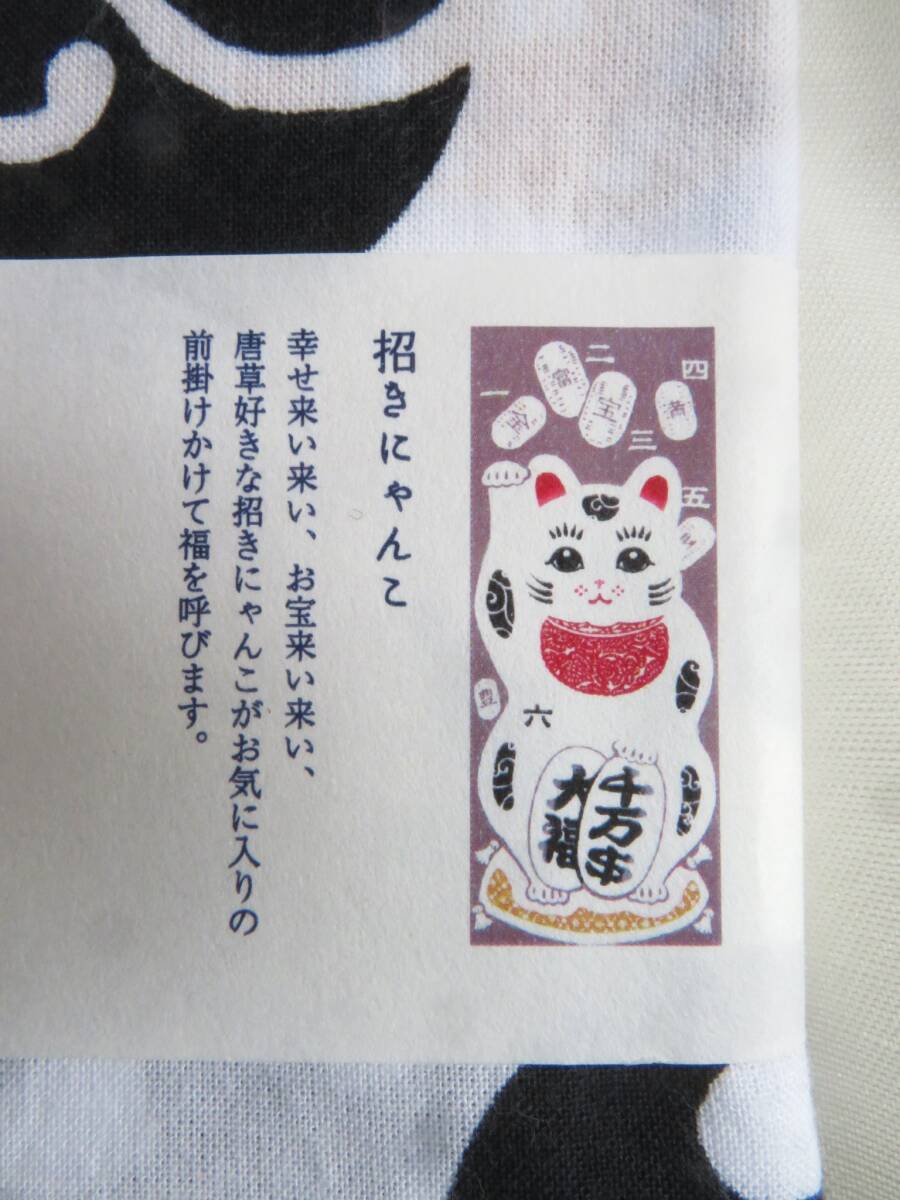 招きにゃんこ
幸せ来い来い、お宝来い来い、
唐草好きな招きにゃんこがお気に入りの
前掛けかけて福を呼びます。
一
二
三
四
五
六
金
宝
豊
千万中
大福